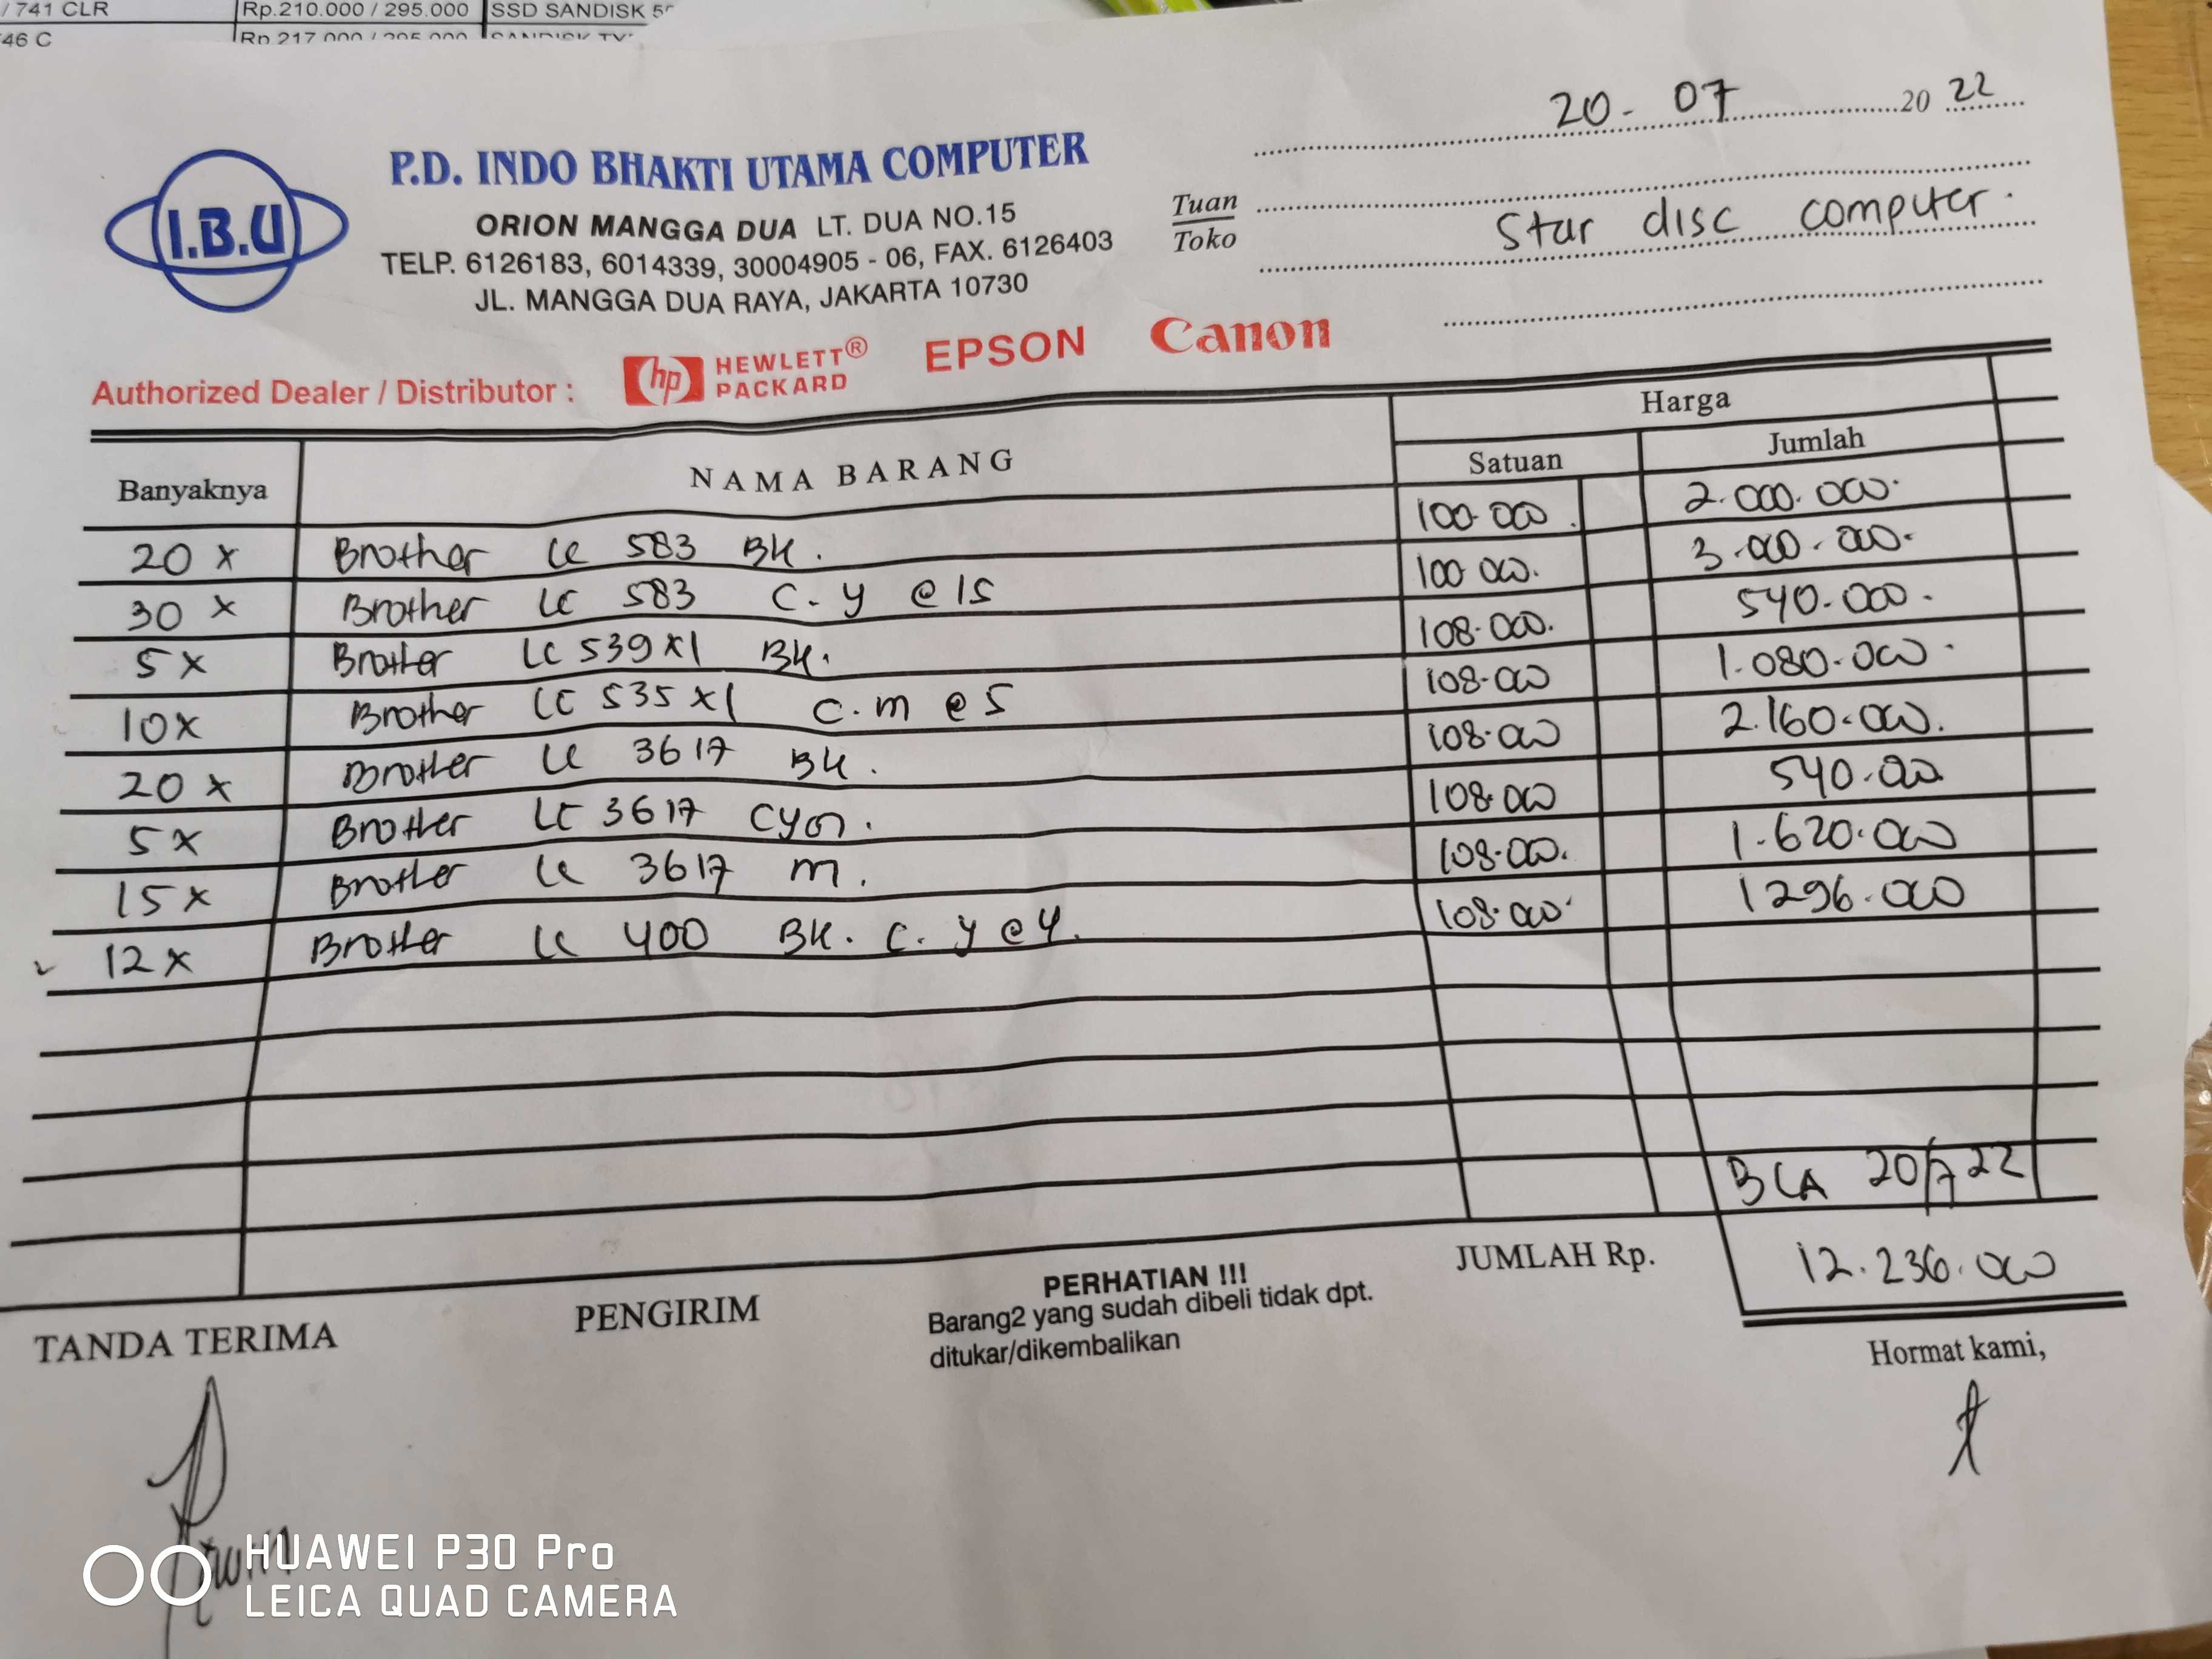 / 741 CLR Rp.210.000 / 295.000 SSD SANDISK
46 C Rp 217.000 / 295.000 SANDISK
20 - 07 20 22
P.D. INDO BHAKTI UTAMA COMPUTER
I.B.U
ORION MANGGA DUA LT. DUA NO.15
TELP. 6126183, 6014339, 30004905 - 06, FAX. 6126403
JL. MANGGA DUA RAYA, JAKARTA 10730
Tuan
Toko
Star disc computer.
Authorized Dealer / Distributor : hp HEWLETT® PACKARD EPSON Canon
Banyaknya NAMA BARANG Harga
Satuan Jumlah
20 x Brother LC 583 BK. 100.000 2.000.000.
30 x Brother LC 583 C - y @ 15 100.000. 3.000.000.
5 x Brother LC 539 xl BK. 108.000. 540.000.
10 x Brother LC 535 xl C.m @ 5 108.000 1.080.000.
20 x Brother LC 3617 BK. 108.000 2.160.000.
5 x Brother LC 3617 Cyan. 108.000 540.000
15 x Brother LC 3617 m. 108.000. 1.620.000
12 x Brother LC 400 BK. C. y @ 4. 108.000 1296.000
BCA 20/7 22
JUMLAH Rp. 12.236.000
TANDA TERIMA PENGIRIM PERHATIAN !!!
Barang2 yang sudah dibeli tidak dpt.
ditukar/dikembalikan
Hormat kami,
HUAWEI P30 Pro
LEICA QUAD CAMERA